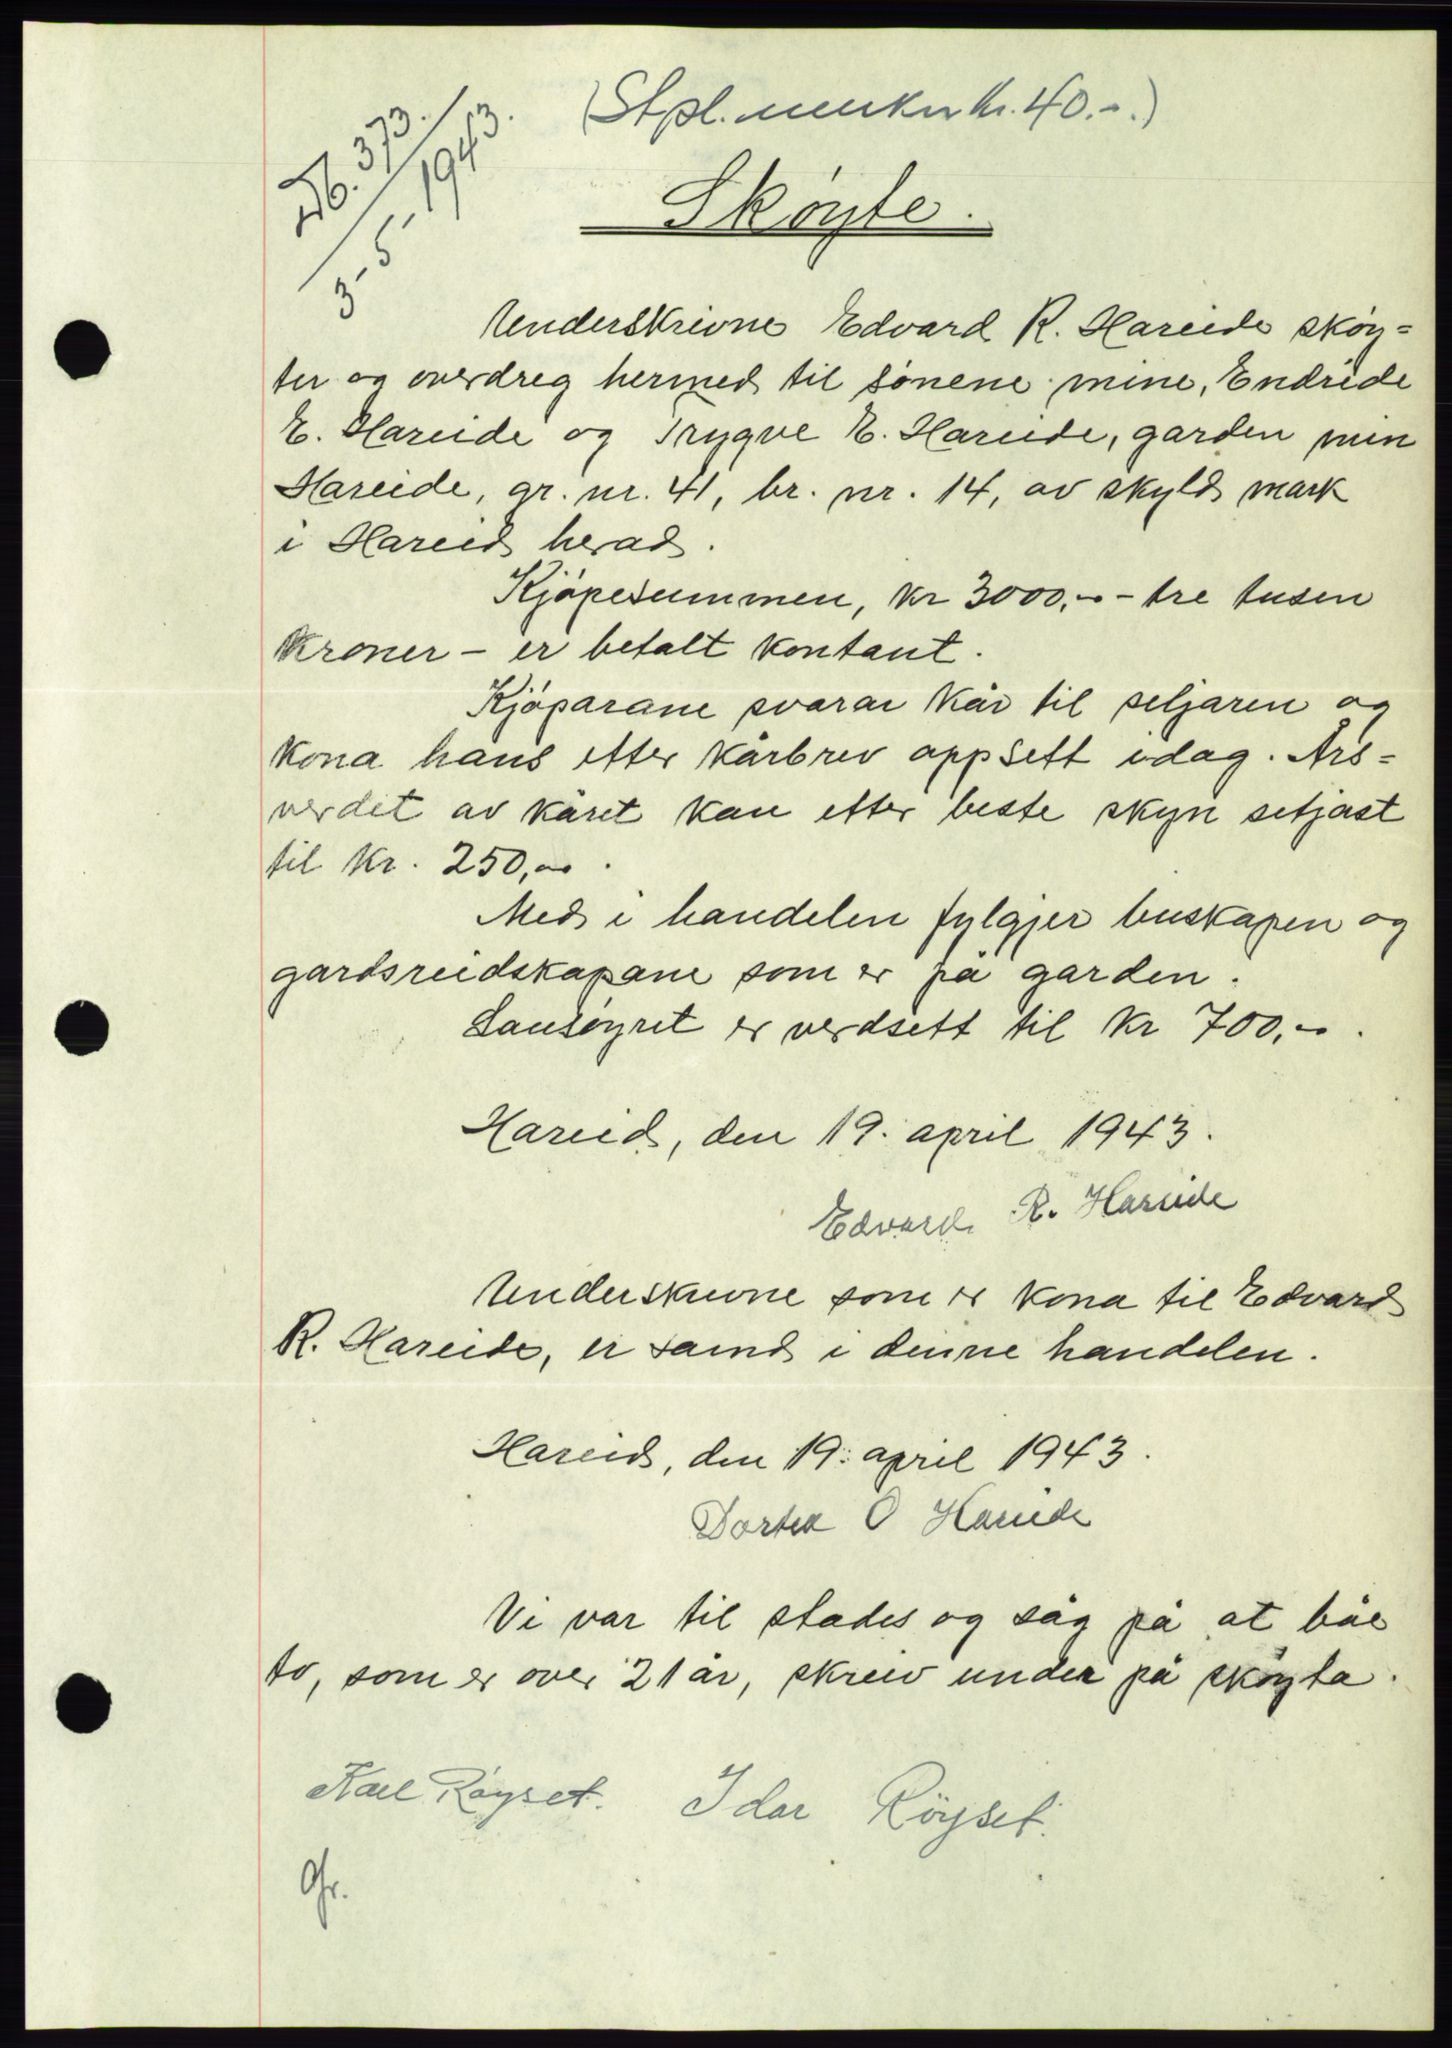 (Stpl. merker kr. 40.-.)
Db. 373.
3-5-1943.
Skøyte.
Underskrivne Edvard R. Hareide skøy=
ter og overdreg hermed til sønene mine, Endride
E. Hareide og Trygve E. Hareide, garden min
Hareide, gr. nr. 41, br. nr. 14, av skyld mark
i Hareid herad.
Kjøpesummen, kr 3000,- - tre tusen
kroner - er betalt kontant.
Kjøparane svarar kår til seljaren og
kona hans etter kårbrev oppsett idag. Års=
verdet av kåret kan etter beste skyn setjast
til kr. 250,-.
Med i handelen fylgjer buskapen og
gardsreidskapane som er på garden.
Lausøyret er verdsett til kr 700,-.
Hareid, den 19. april 1943.
Edvard R. Hareide
Underskrivne som er kona til Edvard
R. Hareide, er samd i denne handelen.
Hareid, den 19. april 1943.
Dortea O Hareide
Vi var til stades og såg på at båe
to, som er over 21 år, skreiv under på skøyta.
Karl Røyset. Idar Röyset.
Gr.